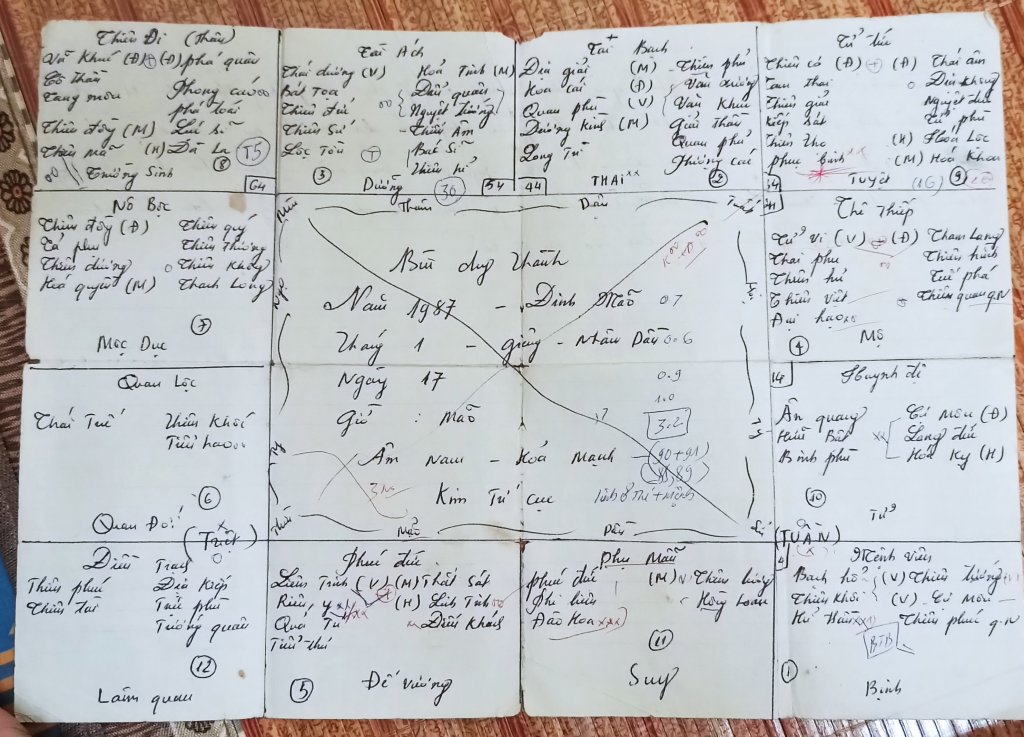 Thiên Di (Thân)
Văn Khúc (Đ) (Đ) phá quân
Cô thần
Tang môn Phong cáo
phá toái
Thiên đồng (M) Lực sĩ
Thiên Mã (H) Đà La
Trường Sinh
8
T5
64
Tật Ách
Thái dương (V) Hoả Tinh (M)
Bát Toạ Đẩu quân
Thiên đức Nguyệt đường
Thiên Sứ Thiên Âm
Lộc Tồn Bác Sĩ
Thiên hỉ
3
Dưỡng
36
54
Tài Bạch
Địa giải (M) Thiên phủ
Hoa cái (Đ) Văn xương
Quan phù (V) Văn Khúc
Dương Kình (M) Giải Thần
Long Trì Quan phủ
Phượng Các
44
THAI
2
Tử tức
Thiên cơ (Đ) (Đ) Thái âm
Tam thai Địa không
Thiên giải Nguyệt đức
Kiếp Sát Tử phù
Thiên Thọ (H) Hoá Lộc
Phục binh (M) Hoá Khoa
34
Tuyệt
(16)
9
Nô Bộc
Thiên đồng (Đ) Thiên quý
Tả phụ Thiên Thương
Thiên dương Thiên Không
Hoá quyền (M) Thanh Long
7
Mộc Dục
Thân
Dậu
Tuất
Bùi duy Thành
Năm 1987 - Đinh Mão 0.7
Tháng 1 - giêng - Nhâm Dần 0.6
Ngày 17 0.9
1.0
Giờ : Mão
3.2
Âm Nam - Hoả Mạnh (90+91)
89
Kim Tứ cục
Mão
Ngọ
Tỵ
Thìn
Hợi
Tý
Thê Thiếp
Tử Vi (V) (Đ) Tham Lang
Thai phụ Thiên hình
Thiên hư Tuế phá
Thiên Việt Thiên quan q.N
Đại hao
4
Mộ
Quan Lộc
Thái Tuế Thiên Khôi
Tiểu hao
6
Quan Đới
(Triệt)
14
Huynh đệ
Ân quang Cự Môn (Đ)
Hữu Bật Long đức
Bệnh phù Hoá Kỵ (H)
10
Tử
(TUẦN)
Điền Trạch
Thiên phúc Địa Kiếp
Thiên tài Trực phù
Tướng quân
12
Lâm quan
Phúc đức
Liêm Trinh (V) (M) Thất Sát
Riêu, y (H) Linh Tinh
Quả Tú Điếu Khách
Tiểu thư
5
Đế vượng
Phụ Mẫu
Phúc đức (M) Thiên lương
Phi liêm Hồng loan
Đào Hoa
11
Suy
4
Mệnh Viên
Bạch hổ (V) Thiên tướng
Thiên Khôi (V)
Hỷ Thần Thiên phúc q.N
BTB
1
Bệnh